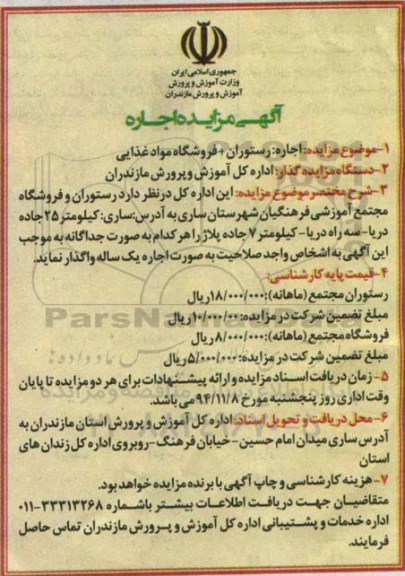 جمهوری اسلامی ایران
وزارت آموزش و پرورش
آموزش و پرورش مازندران
آگهی مزایده اجاره
۱-موضوع مزایده: اجاره: رستوران + فروشگاه مواد غذایی
۲-دستگاه مزایده گذار: اداره کل آموزش و پرورش مازندران
۳-شرح مختصر موضوع مزایده: این اداره کل در نظر دارد رستوران و فروشگاه
مجتمع آموزشی فرهنگیان شهرستان ساری به آدرس: ساری: کیلومتر ۲۵ جاده
دریا- سه راه دریا- کیلومتر ۷ جاده پلاژ را هر کدام به صورت جداگانه به موجب
این آگهی به اشخاص واجد صلاحیت به صورت اجاره یک ساله واگذار نماید.
۴-قیمت پایه کارشناسی:
رستوران مجتمع (ماهانه): ۱۸/۰۰۰/۰۰۰ریال
مبلغ تضمین شرکت در مزایده: ۱۰/۰۰۰/۰۰۰ریال
فروشگاه مجتمع (ماهانه): ۸/۰۰۰/۰۰۰ریال
مبلغ تضمین شرکت در مزایده: ۵/۰۰۰/۰۰۰ریال
۵- زمان دریافت اسناد مزایده و ارائه پیشنهادات برای هر دو مزایده تا پایان
وقت اداری روز پنجشنبه مورخ ۹۴/۱۱/۸ می باشد.
۶- محل دریافت و تحویل اسناد: اداره کل آموزش و پرورش استان مازندران به
آدرس ساری میدان امام حسین - خیابان فرهنگ- روبروی اداره کل زندان های
استان
۷- هزینه کارشناسی و چاپ آگهی با برنده مزایده خواهد بود.
متقاضیان جهت دریافت اطلاعات بیشتر با شماره ۳۳۳۱۳۲۶۸-۰۱۱
اداره خدمات و پشتیبانی اداره کل آموزش و پرورش مازندران تماس حاصل
فرمایند.